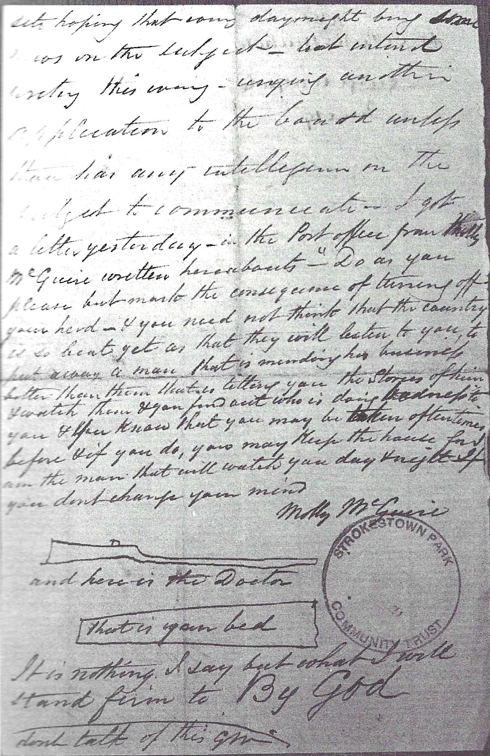 set, hoping that every day might bring some
news on the subject – but intend
writing this evening – urging another
application to the board unless
has any intelligence on the
subject to communicate – I got
a letter yesterday – in the Post office from Molly
McGuire written hereabouts – "Do as you
please but mark the consequence of turning off
your herd – & you need not think that the country
is so beat yet as that they will listen to you to
put away a man that is minding his business
better than them that is telling you the Stories of him
& watch them & you find out who is doing to
you & you Know that you may be taken oftentimes
before & if you do, you may Keep the house for I
am the man that will watch you day & night If
you dont change your mind
Molly McGuire
and here is the Doctor
that is your bed
It is nothing I say but what I will
stand firm to By God
dont talk of this
STROKESTOWN PARK
COMMUNITY TRUST